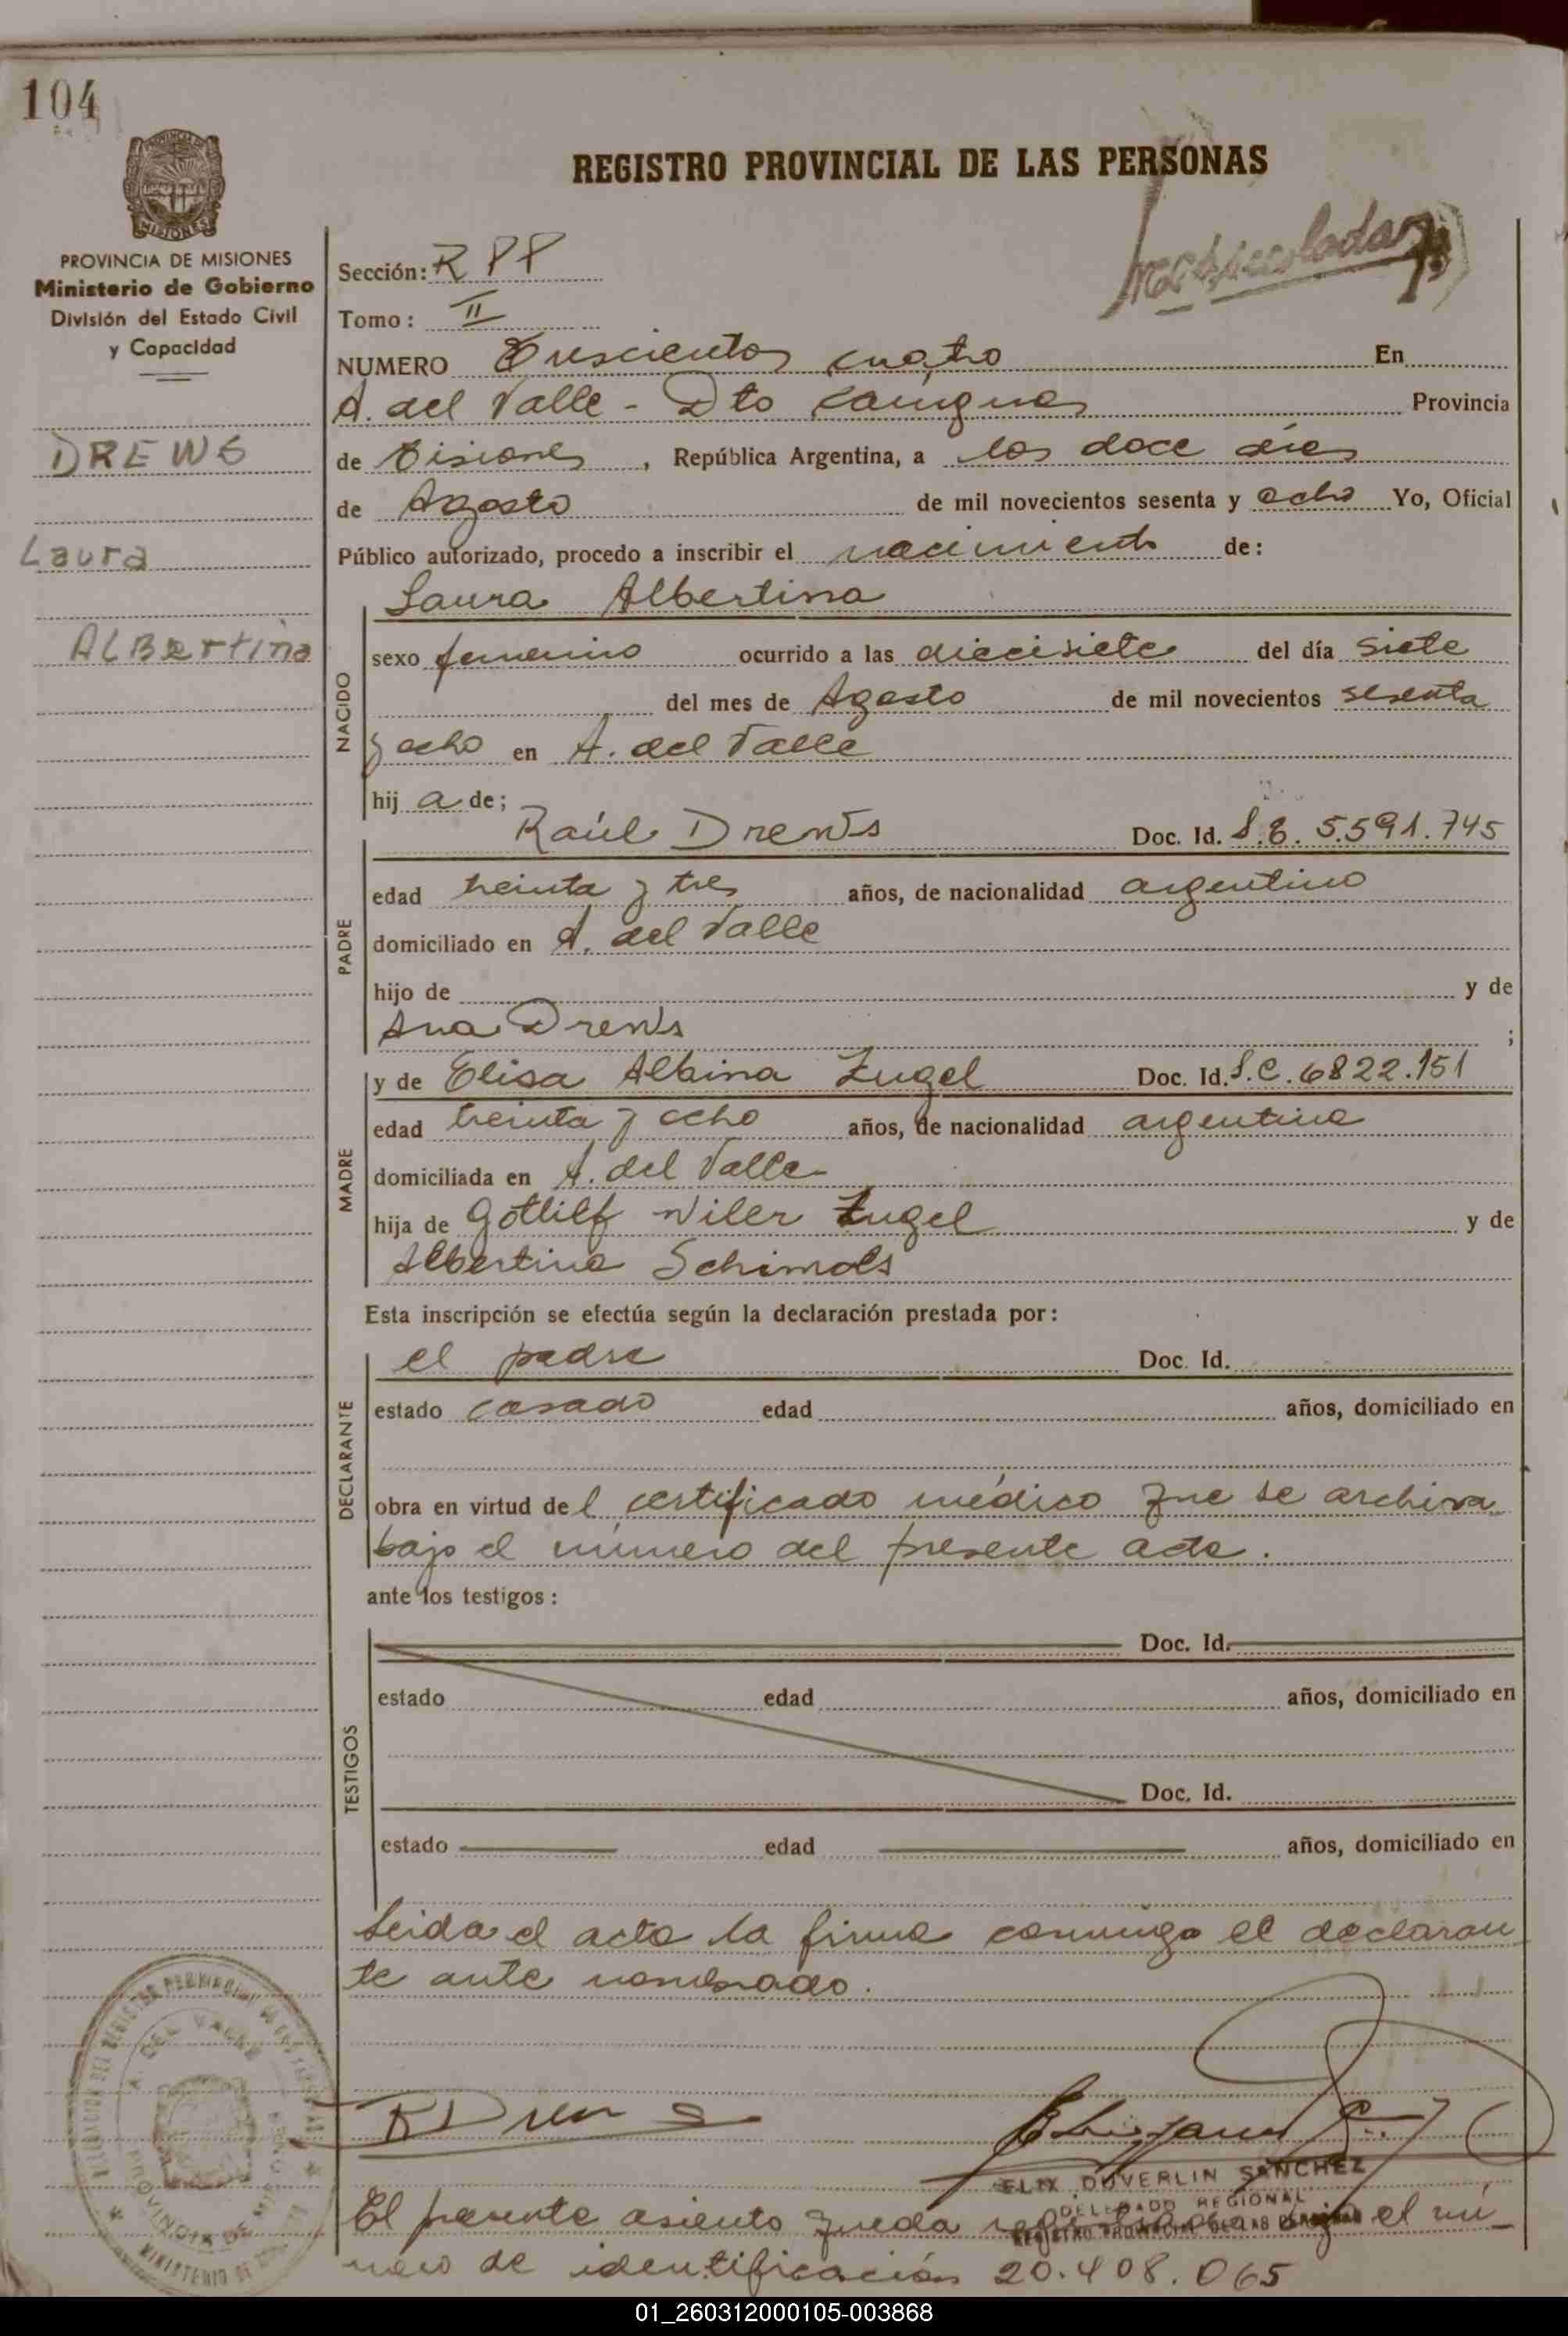 104
REGISTRO PROVINCIAL DE LAS PERSONAS
PROVINCIA DE MISIONES
Ministerio de Gobierno
División del Estado Civil
y Capacidad
DREWS
Laura
ALBertina
Sección: RPP
Tomo: II
NUMERO Trescientos cuatro En
A. del Valle - Dto Cainguas Provincia
de Misiones, República Argentina, a los doce dias
de Agosto de mil novecientos sesenta y ocho Yo, Oficial
Público autorizado, procedo a inscribir el nacimiento de:
NACIDO
Laura Albertina
sexo femenino ocurrido a las diecisiete del día siete
del mes de Agosto de mil novecientos sesenta
y ocho en A. del Valle
hij a de;
PADRE
Raúl Drews Doc. Id. L.E. 5.591.745
edad treinta y tres años, de nacionalidad argentino
domiciliado en A. del Valle
hijo de y de
Ana Drews ;
MADRE
y de Elisa Albina Zugel Doc. Id. L.C. 6822.151
edad treinta y ocho años, de nacionalidad argentina
domiciliada en A. del Valle
hija de Gotlilf Wiler Zugel y de
Albertina Schimols
Esta inscripción se efectúa según la declaración prestada por:
DECLARANTE
el padre Doc. Id.
estado casado edad años, domiciliado en
obra en virtud del certificado médico que se archiva
bajo el número del presente acta.
ante los testigos:
TESTIGOS
Doc. Id.
estado edad años, domiciliado en
Doc. Id.
estado edad años, domiciliado en
Leida el acta la firma conmigo el declaran
te ante nombrado.
R Drews
ELIX DUVERLIN SANCHEZ
DELEGADO REGIONAL
REGISTRO PROVINCIAL DE LAS PERSONAS
El presente asiento queda registrado bajo el nú-
mero de identificación 20.408.065
A. DEL VALLE
PROVINCIA DE MISIONES
01_260312000105-003868